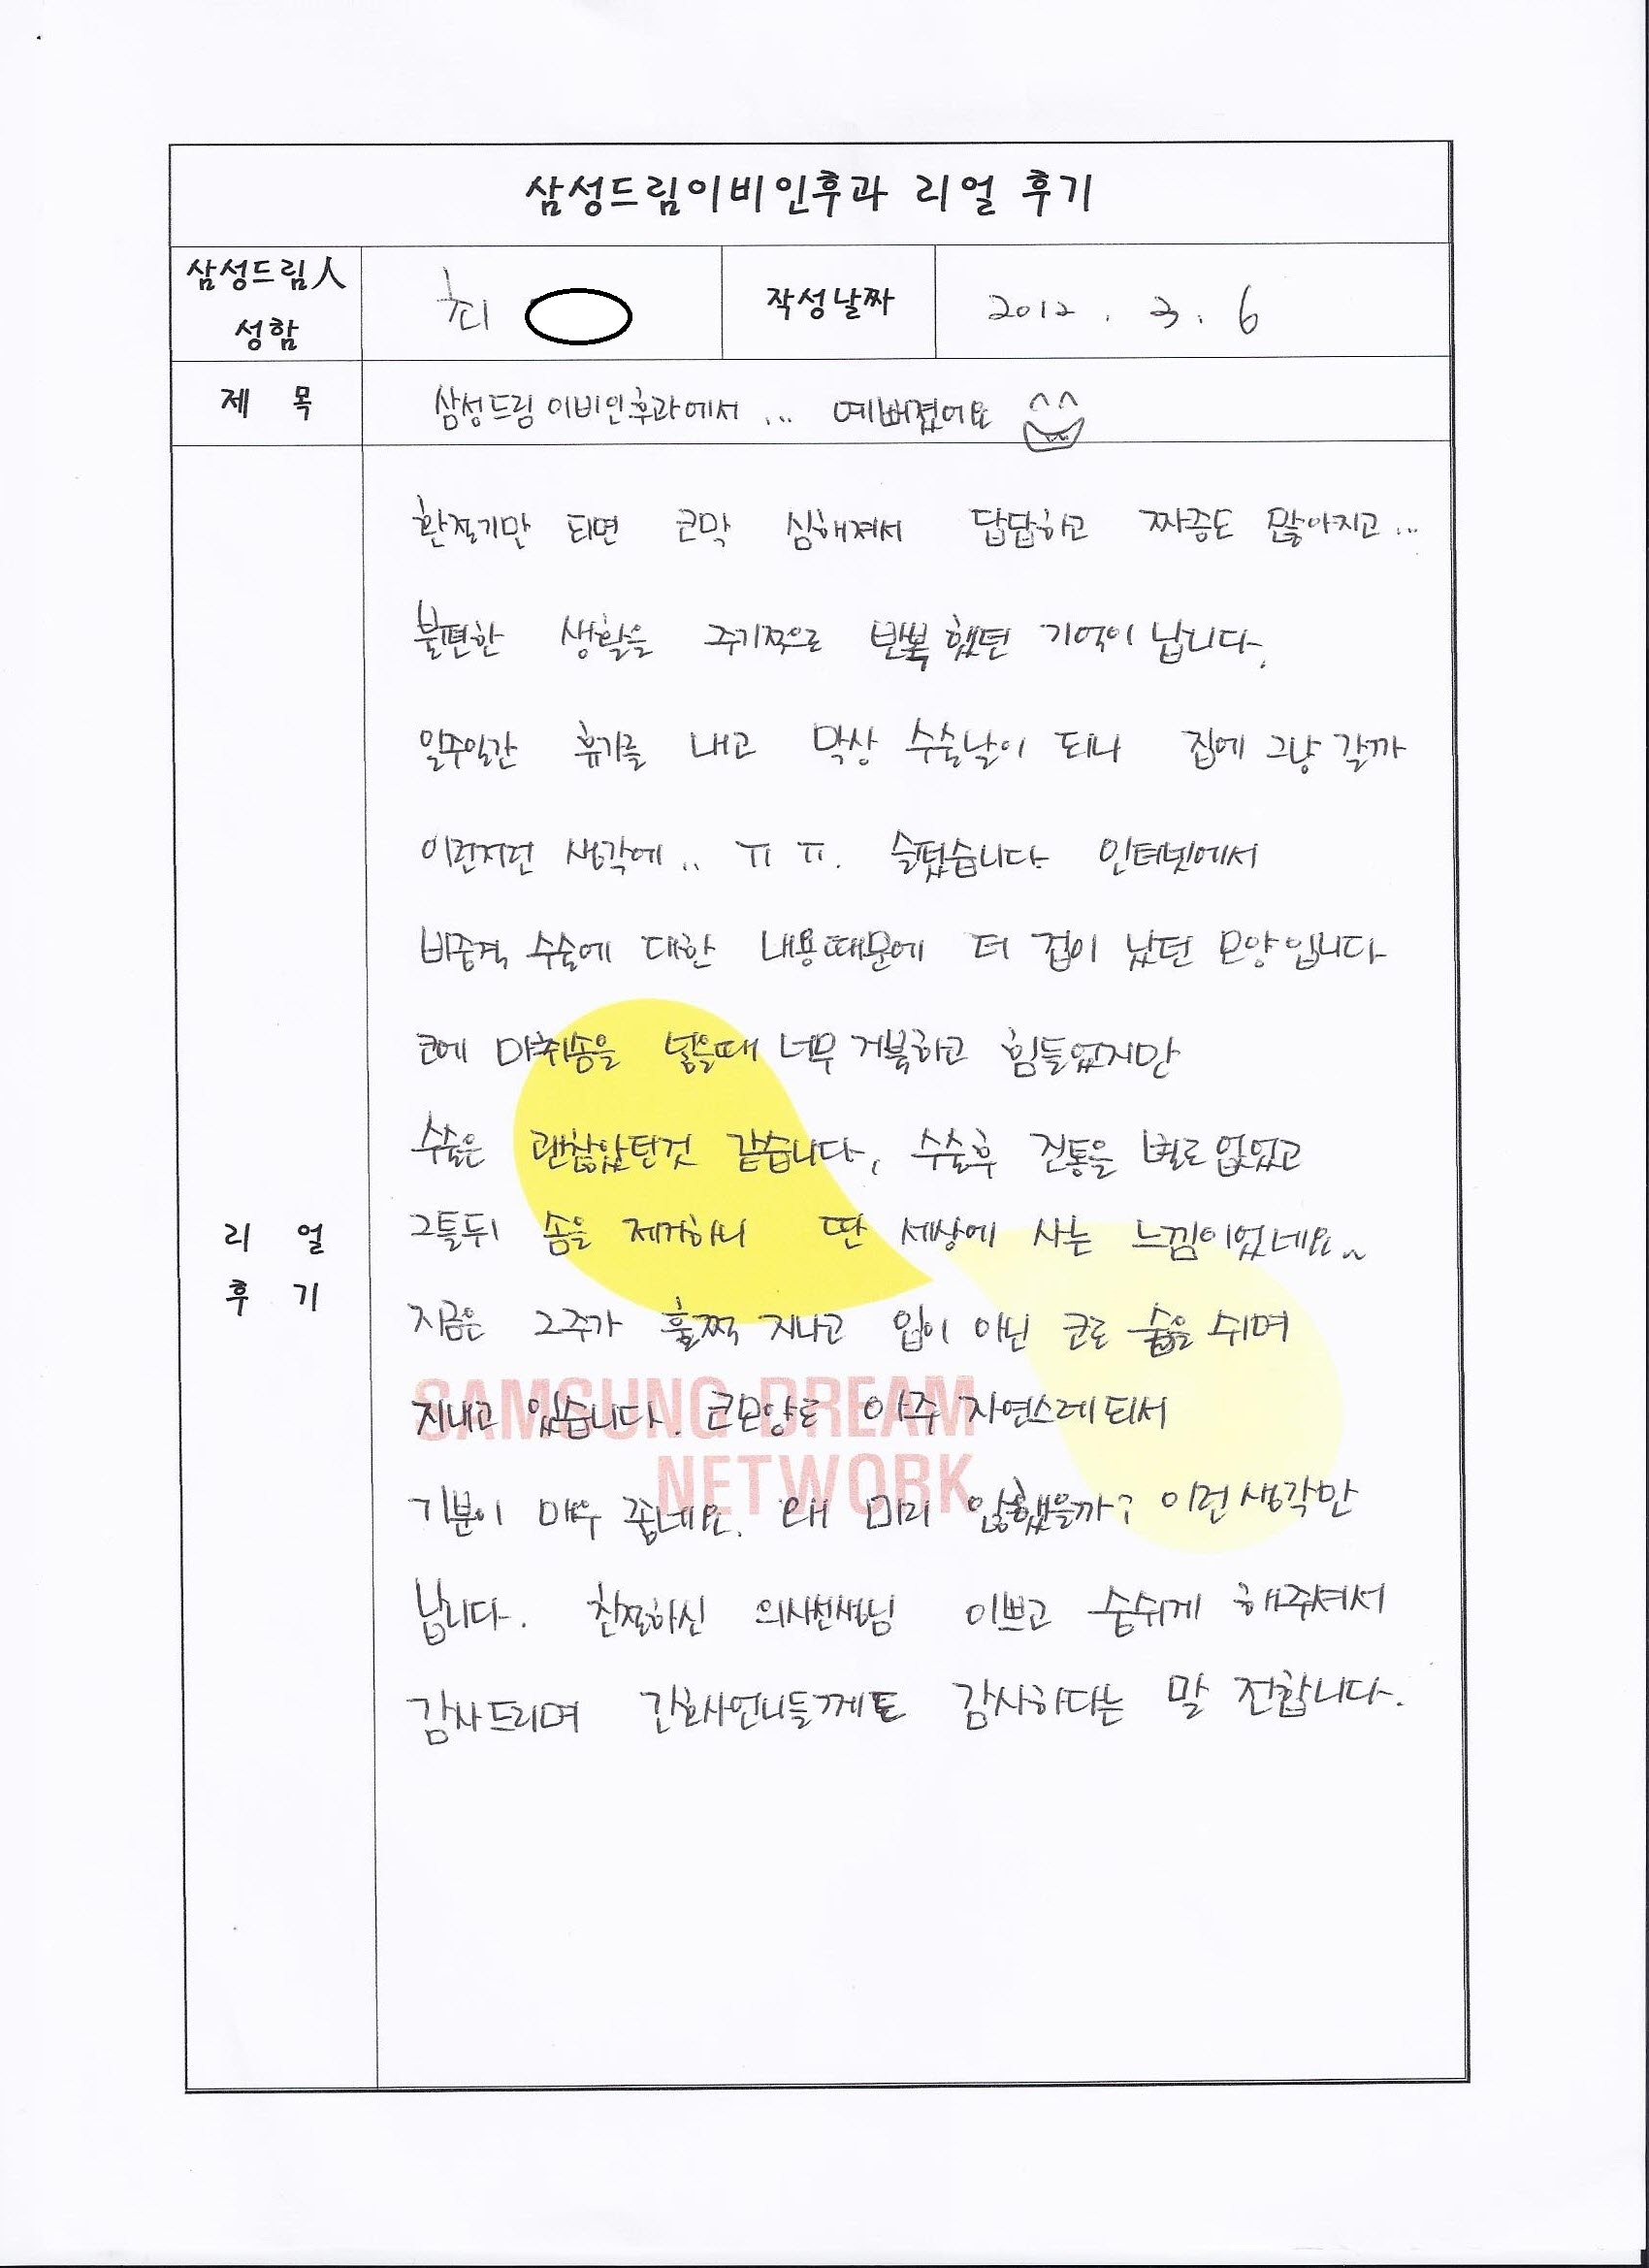 삼성드림이비인후과 리얼 후기
삼성드림人
성함
최
작성날짜
2012 . 3. 6
제 목
삼성드림 이비인후과에서 ... 예뻐졌어요
환절기만 되면 코막 심해져서 답답하고 짜증도 많아지고...
불편한 생활을 주기적으로 반복했던 기억이 납니다.
일주일간 휴가를 내고 막상 수술날이 되니 집에 그냥 갈까
이런저런 생각에.. ㅠㅠ. 슬펐습니다 인터넷에서
비중격 수술에 대한 내용때문에 더 겁이 났던 모양입니다
코에 마취솜을 넣을때 너무 거북하고 힘들었지만
수술은 괜찮았던것 같습니다, 수술후 진통을 별로없었고
그틀뒤 솜을 제거하니 딴 세상에 사는 느낌이었네요~
리 얼
후 기
지금은 2주가 훌쩍 지나고 입이 아닌 코로 숨을 쉬며
지내고 있습니다. 코모양로 아주 자연스레 되서
기분이 매우 좋네요. 왜 미리 않했을까? 이런생각만
납니다. 친절하신 의사선생님 이쁘고 숨쉬게 해주셔서
감사드리며 간호사언니들께도 감사하다는 말 전합니다.
SAMSUNG DREAM
NETWORK